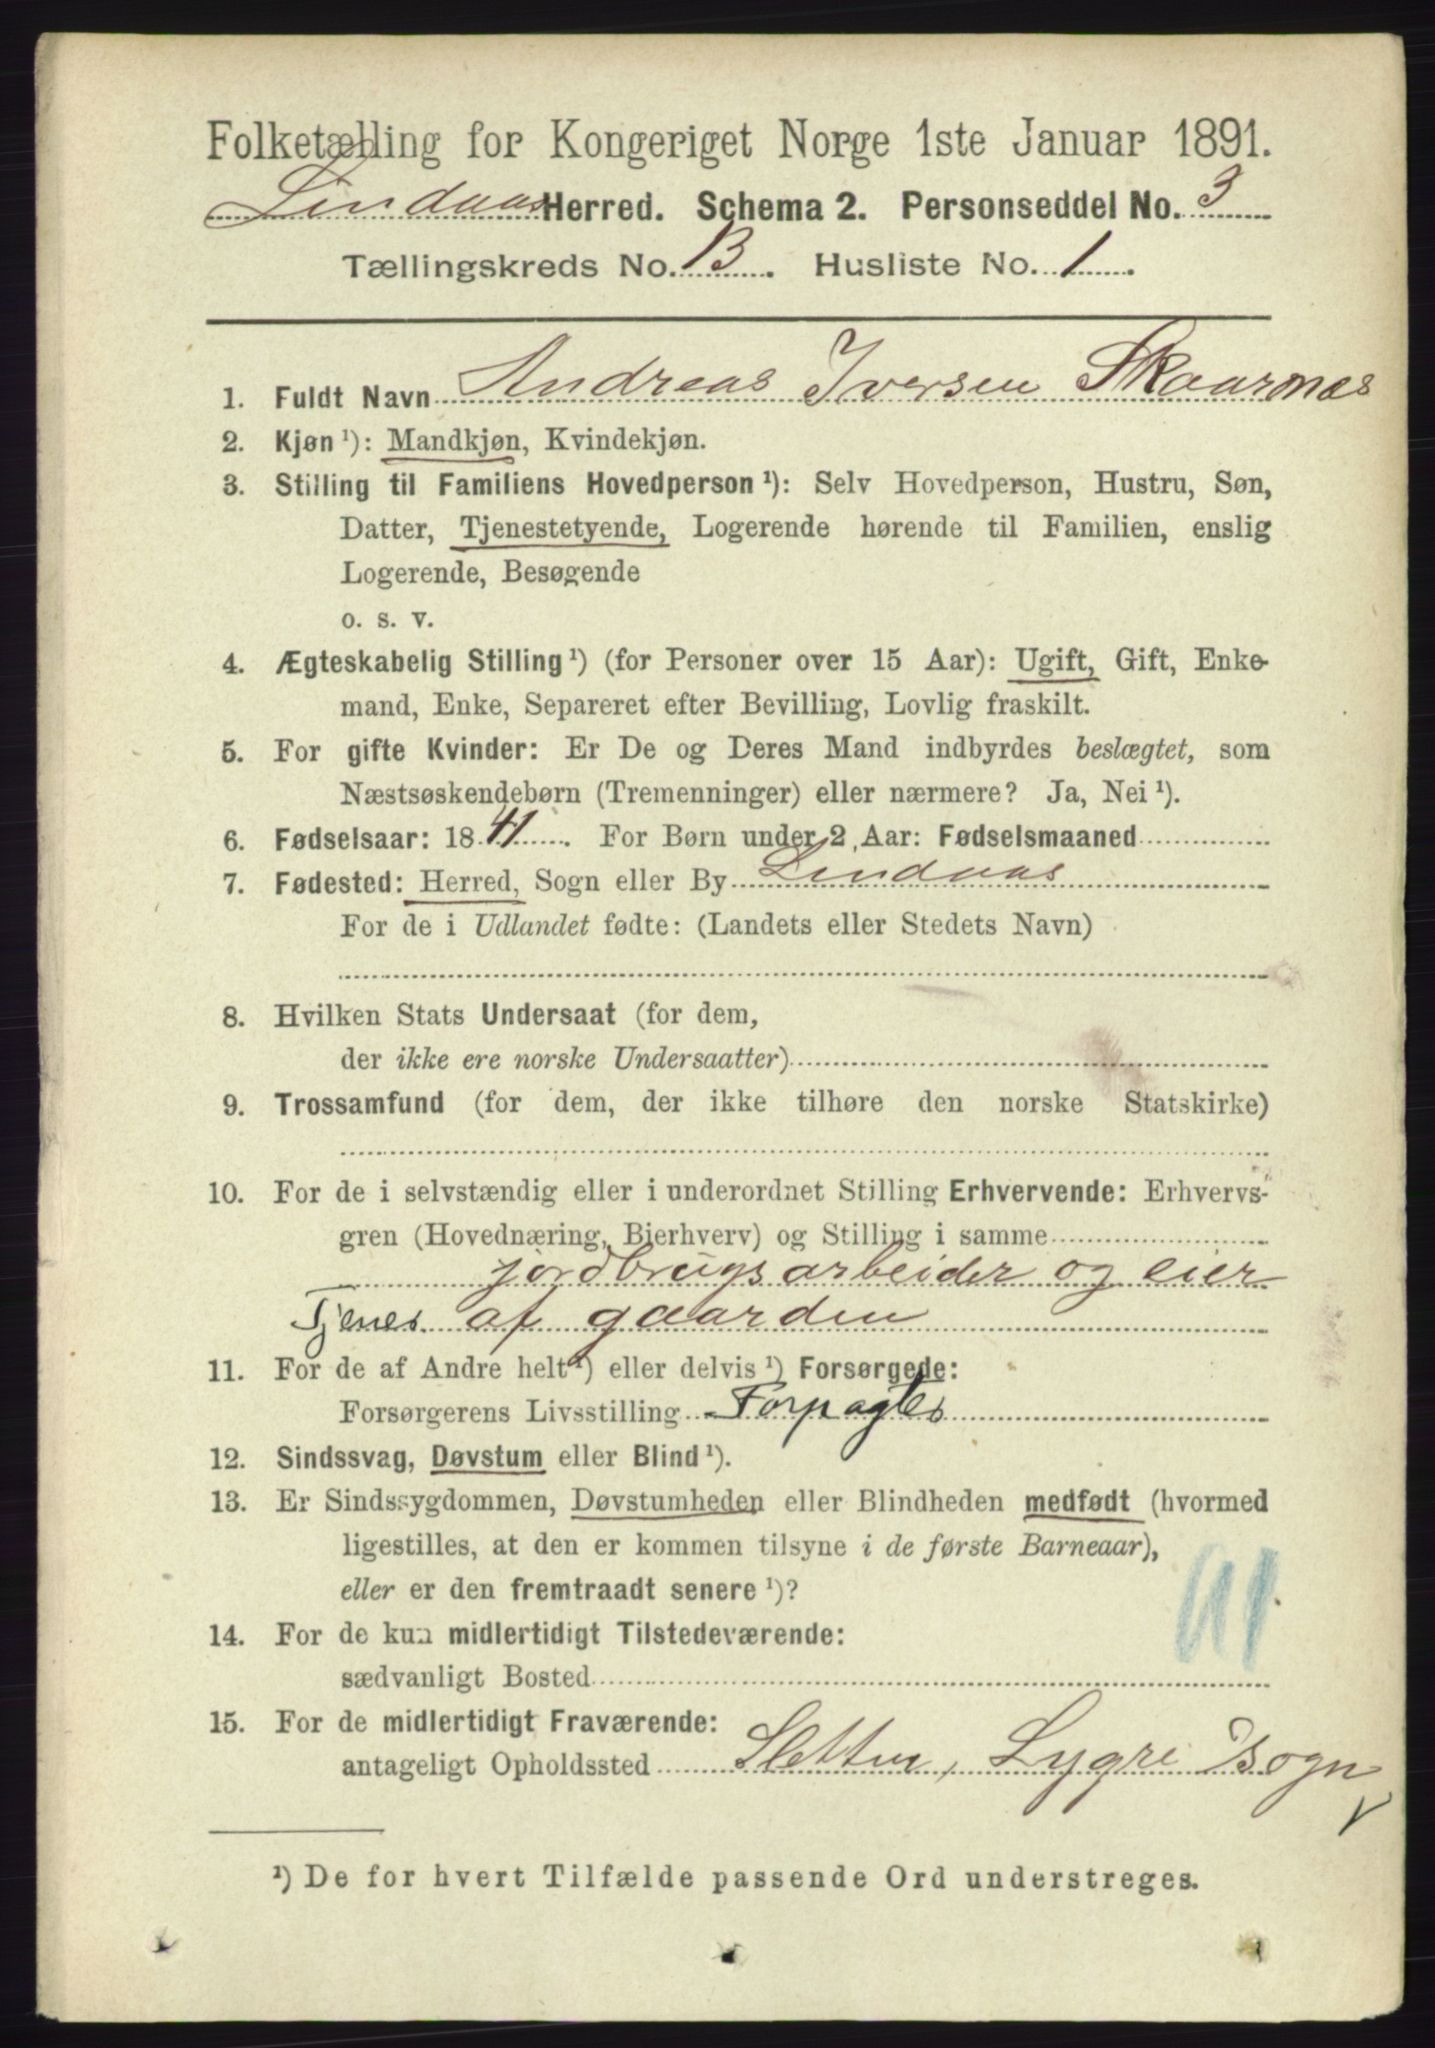 Folketælling for Kongeriget Norge 1ste Januar 1891.
Lindaas Herred. Schema 2. Personseddel No. 3
Tællingskreds No. B. Husliste No. 1.
1. Fuldt Navn Andreas Iversen Skaarnæs
2. Kjøn ¹): Mandkjøn, Kvindekjøn.
3. Stilling til Familiens Hovedperson ¹): Selv Hovedperson, Hustru, Søn,
Datter, Tjenestetyende, Logerende hørende til Familien, enslig
Logerende, Besøgende
o. s. v.
4. Ægteskabelig Stilling ¹) (for Personer over 15 Aar): Ugift, Gift, Enke-
mand, Enke, Separeret efter Bevilling, Lovlig fraskilt.
5. For gifte Kvinder: Er De og Deres Mand indbyrdes beslægtet, som
Næstsøskendebørn (Tremenninger) eller nærmere? Ja, Nei ¹).
6. Fødselsaar: 1841. For Børn under 2 Aar: Fødselsmaaned
7. Fødested: Herred, Sogn eller By Lindaas
For de i Udlandet fødte: (Landets eller Stedets Navn)
8. Hvilken Stats Undersaat (for dem,
der ikke ere norske Undersaatter)
9. Trossamfund (for dem, der ikke tilhøre den norske Statskirke)
10. For de i selvstændig eller i underordnet Stilling Erhvervende: Erhvervs-
gren (Hovednæring, Bierhverv) og Stilling i samme
jordbrugsarbeider og eier
Tjener af gaarden
11. For de af Andre helt ¹) eller delvis ¹) Forsørgede:
Forsørgerens Livsstilling Forpagter
12. Sindssvag, Døvstum eller Blind ¹).
13. Er Sindssygdommen, Døvstumheden eller Blindheden medfødt (hvormed
ligestilles, at den er kommen tilsyne i de første Barneaar),
eller er den fremtraadt senere ¹)?
14. For de kun midlertidigt Tilstedeværende:
sædvanligt Bosted
15. For de midlertidigt Fraværende:
antageligt Opholdssted Sletten, Lygre sogn
¹) De for hvert Tilfælde passende Ord understreges.